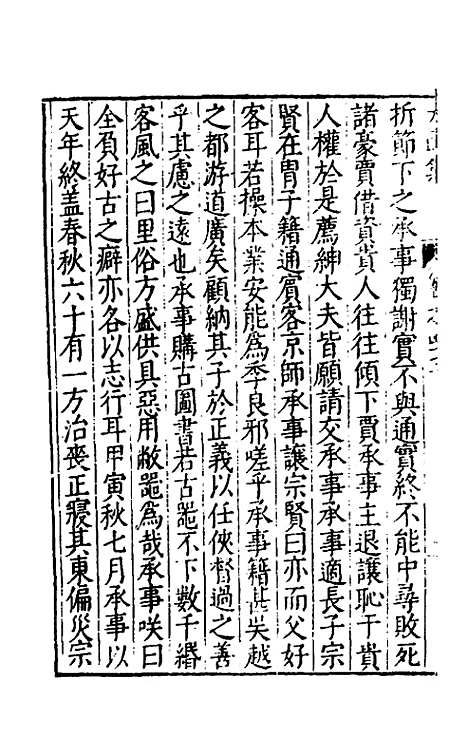 折節下之承事獨謝實不與通實終不能中尋敗死
諸豪賈借資貴人往往傾下賈承事主退讓恥干貴
人權於是薦紳大夫皆願請交承事承事適長子宗
賢在胄子籍通賓客京師承事讓宗賢曰亦而父好
客耳若操本業安能為季良邪嗟乎承事籍甚吴越
之都游道廣矣顧納其子於正義以任俠督過之善
乎其慮之遠也承事購古圖書若古器不下數千緡
客風之曰里俗方盛供具惡用敝器為哉承事咲曰
全負好古之癖亦各以志行耳甲寅秋七月承事以
天年終盖春秋六十有一方治喪正寢其東偏災宗